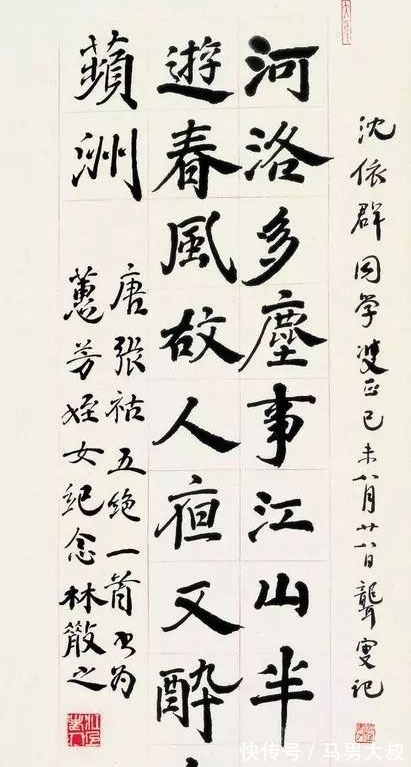 沈依群同学雙正己未八月廿八日聾叟記
河洛多塵事江山半
遊春風故人亱又醉
蘋洲
唐張祜五絶一首书为
蕙芳姪女紀念林散之
快传号/马男大叔